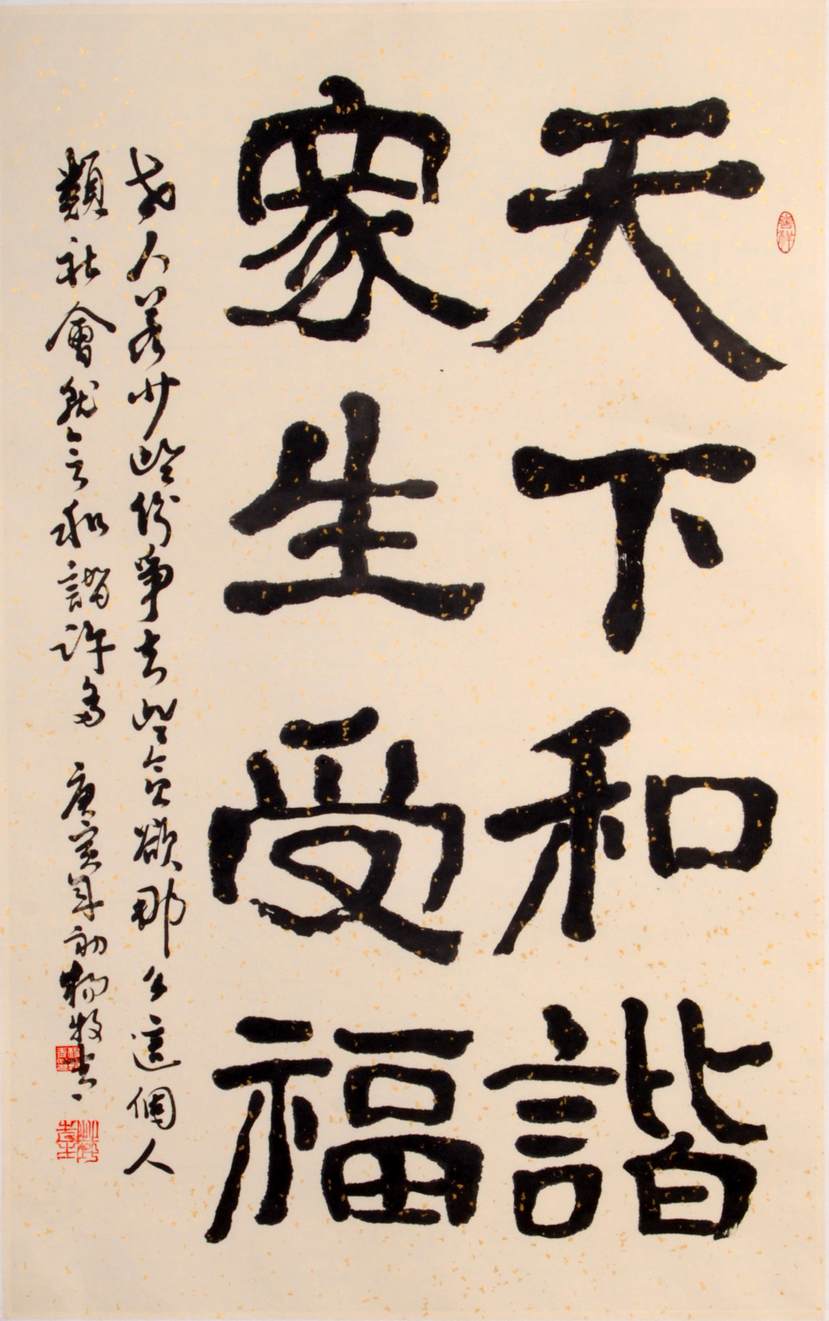 天下和諧
衆生受福
世人若少些份爭去些貪欲那么這個人
類社會就會和諧許多 庚寅年初楊牧青